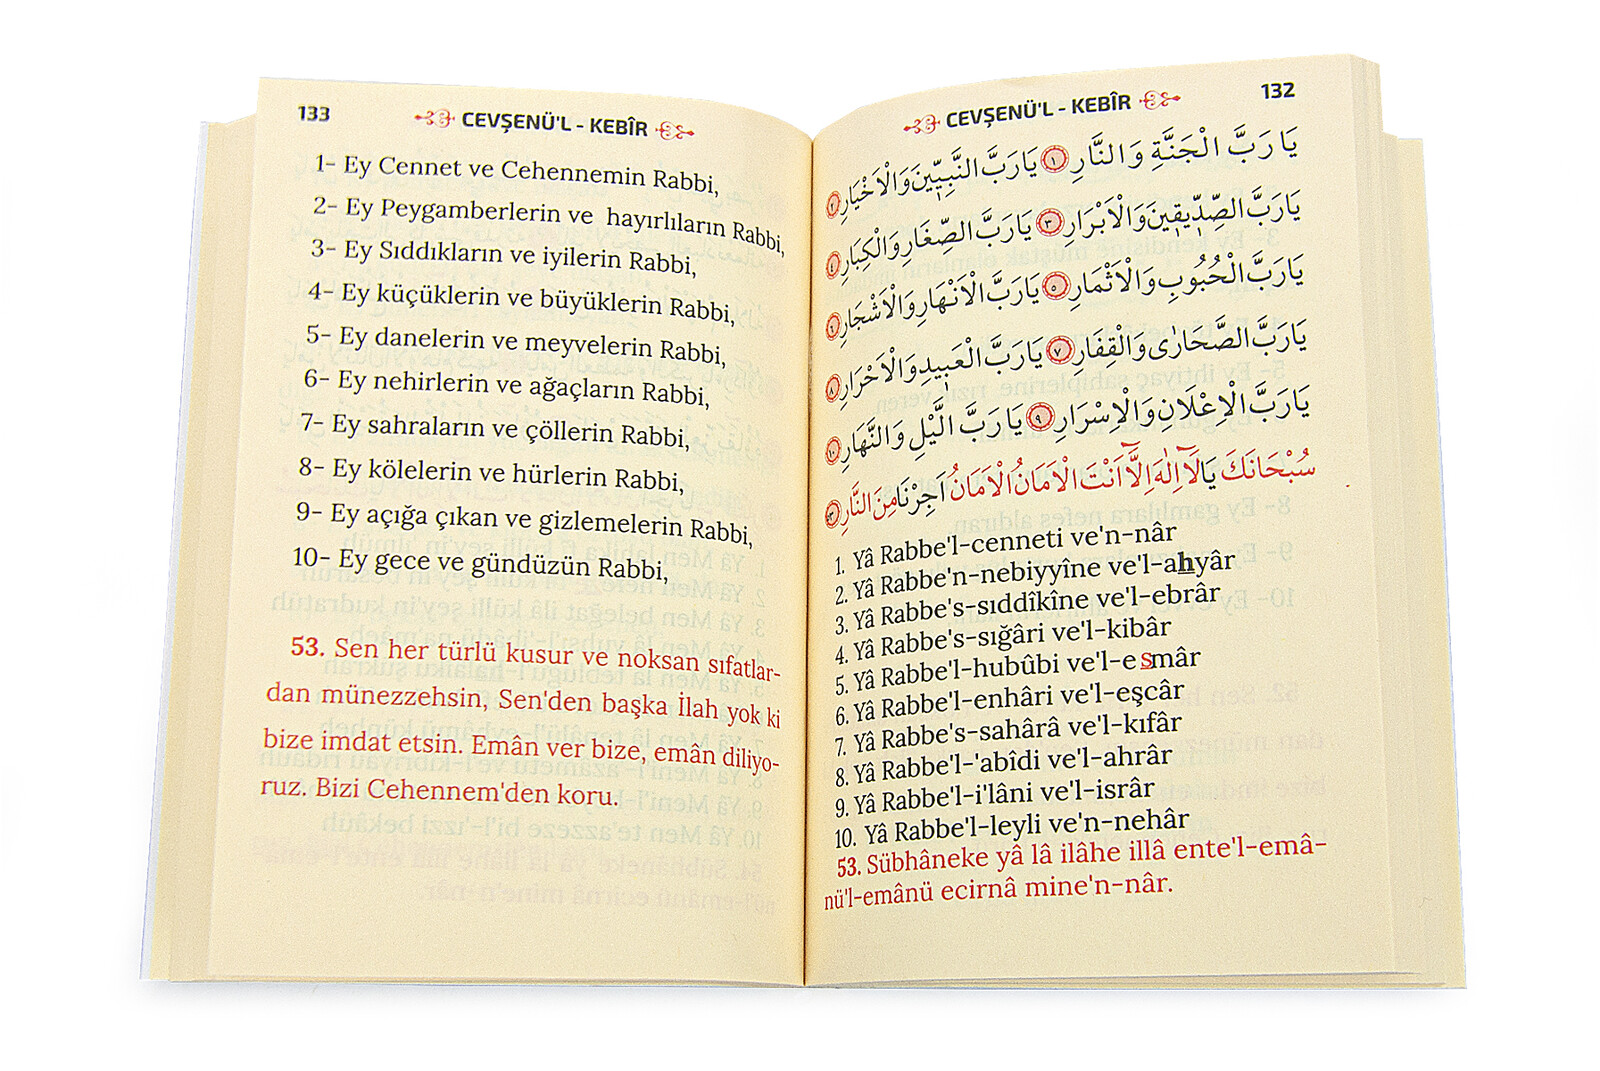 132
CEVŞENÜ'L - KEBÎR
يَا رَبَّ الْجَنَّةِ وَالنَّارِ ١ يَارَبَّ النَّبِيّٖينَ وَالْاَخْيَارِ ٢
يَارَبَّ الصِّدّٖيقٖينَ وَالْاَبْرَارِ ٣ يَارَبَّ الصِّغَارِ وَالْكِبَارِ ٤
يَارَبَّ الْحُبُوبِ وَالْاَثْمَارِ ٥ يَارَبَّ الْاَنْهَارِ وَالْاَشْجَارِ ٦
يَارَبَّ الصَّحَارٰى وَالْقِفَارِ ٧ يَارَبَّ الْعَبٖيدِ وَالْاَحْرَارِ ٨
يَارَبَّ الْاِعْلَانِ وَالْاِسْرَارِ ٩ يَارَبَّ الَّيْلِ وَالنَّهَارِ ١٠
سُبْحَانَكَ يَالَآ اِلٰهَ اِلَّآ اَنْتَ الْاَمَانُ الْاَمَانُ اَجِرْنَا مِنَ النَّارِ
1. Yâ Rabbe'l-cenneti ve'n-nâr
2. Yâ Rabbe'n-nebiyyîne ve'l-ahyâr
3. Yâ Rabbe's-sıddîkîne ve'l-ebrâr
4. Yâ Rabbe's-sığâri ve'l-kibâr
5. Yâ Rabbe'l-hubûbi ve'l-esmâr
6. Yâ Rabbe'l-enhâri ve'l-eşcâr
7. Yâ Rabbe's-sahârâ ve'l-kıfâr
8. Yâ Rabbe'l-'abîdi ve'l-ahrâr
9. Yâ Rabbe'l-i'lâni ve'l-isrâr
10. Yâ Rabbe'l-leyli ve'n-nehâr
53. Sübhâneke yâ lâ ilâhe illâ ente'l-emâ-
nü'l-emânü ecirnâ mine'n-nâr.
133
CEVŞENÜ'L - KEBÎR
1- Ey Cennet ve Cehennemin Rabbi,
2- Ey Peygamberlerin ve hayırlıların Rabbi,
3- Ey Sıddıkların ve iyilerin Rabbi,
4- Ey küçüklerin ve büyüklerin Rabbi,
5- Ey danelerin ve meyvelerin Rabbi,
6- Ey nehirlerin ve ağaçların Rabbi,
7- Ey sahraların ve çöllerin Rabbi,
8- Ey kölelerin ve hürlerin Rabbi,
9- Ey açığa çıkan ve gizlemelerin Rabbi,
10- Ey gece ve gündüzün Rabbi,
53. Sen her türlü kusur ve noksan sıfatlar-
dan münezzehsin, Sen'den başka İlah yok ki
bize imdat etsin. Emân ver bize, emân diliyo-
ruz. Bizi Cehennem'den koru.